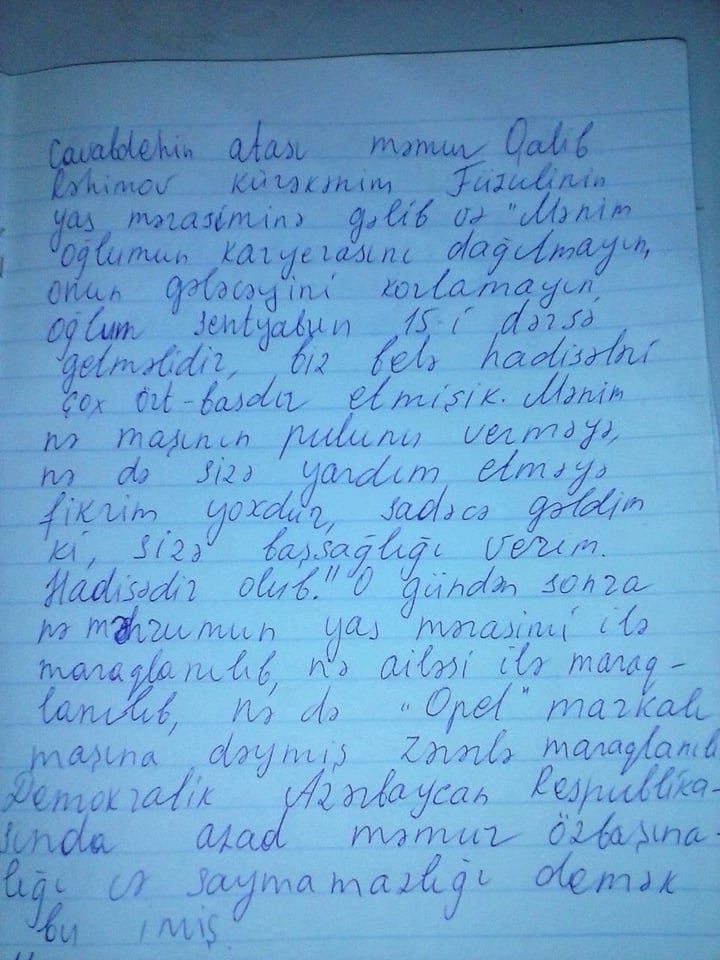 Cavabdehin atası məmur Qalib
Rəhimov kürəkənim Füzulinin
yas mərasiminə gəlib və "Mənim
oğlumun karyerasını dağıtmayın,
onun gələcəyini korlamayın,
oğlum sentyabın 15-i dərsə
getməlidir, biz belə hadisələri
çox ört-basdır etmişik. Mənim
nə maşının pulunu verməyə,
nə də sizə yardım etməyə
fikrim yoxdur, sadəcə gəldim
ki, sizə başsağlığı verim.
Hadisədir olub." O gündən sonra
nə məhrumun yas mərasimi ilə
maraqlanılıb, nə ailəsi ilə maraq-
lanılıb, nə də "Opel" markalı
maşına dəymiş zərərlə maraqlanılı
Demokratik Azərbaycan Respublika-
sında azad məmur özbaşına-
lığı və saymamazlığı demək
bu imiş.